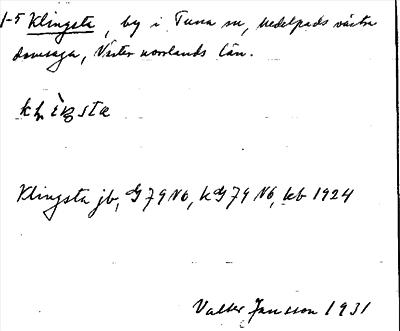 1-5 Klingsta, by i Tuna sn, Medelpads västra
domsaga, Väster norrlands län.
Klingsta jb, G 79 N6, k G 79 N6, kb 1924
Valter Jansson 1931